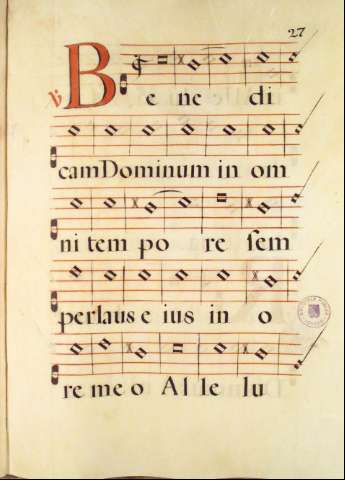 27
℣ Be ne di
cam Dominum in om
ni tem po re sem
per laus e ius in o
re me o Al le lu